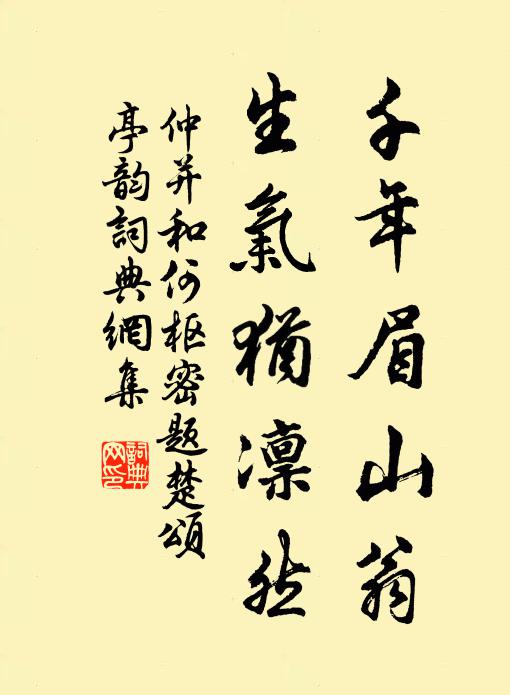 千年眉山翁
生氣猶凜然
仲并和何枢密题楚頌
亭韵詞典網集
詞典
网印